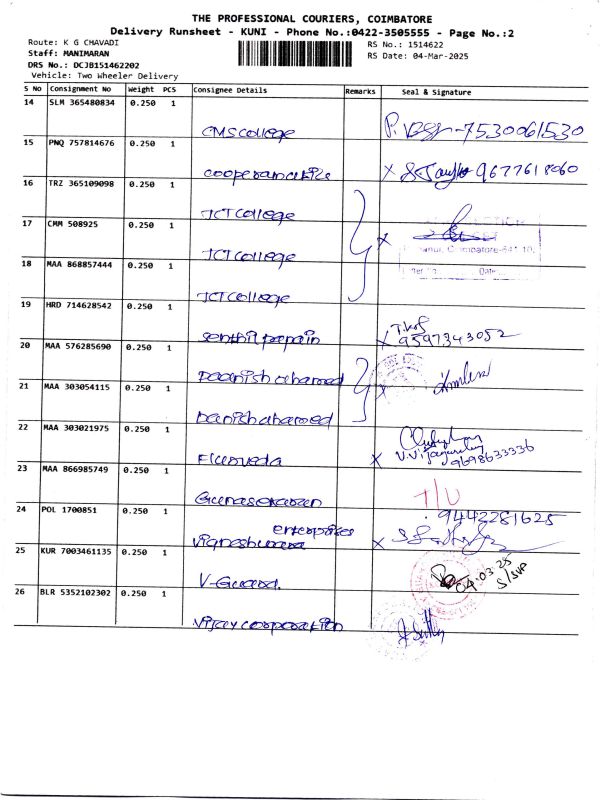 THE PROFESSIONAL COURIERS, COIMBATORE
Delivery Runsheet - KUNI - Phone No.:0422-3505555 - Page No.:2
Route: K G CHAVADI
RS No.: 1514622
Staff: MANIMARAN
RS Date: 04-Mar-2025
DRS No.: DCJB151462202
Vehicle: Two Wheeler Delivery
S No Consignment No Weight PCS Consignee Details Remarks Seal & Signature
14 SLM 365480834 0.250 1
CMS College
7530061530
15 PNQ 757814676 0.250 1
9677618060
16 TRZ 365109098 0.250 1
JCT College
17 CMM 508925 0.250 1
JCT College
18 MAA 868857444 0.250 1
JCT College
19 HRD 714628542 0.250 1
senthil papain
9597343052
20 MAA 576285690 0.250 1
Daanish ahamed
21 MAA 303054115 0.250 1
Danish ahamed
22 MAA 303021975 0.250 1
9698633336
23 MAA 866985749 0.250 1
Gunasekaran
24 POL 1700851 0.250 1
enterprises
Vigneshwara
9442281625
25 KUR 7003461135 0.250 1
V-Guard.
04.03.25
26 BLR 5352102302 0.250 1
Vijay cooporation